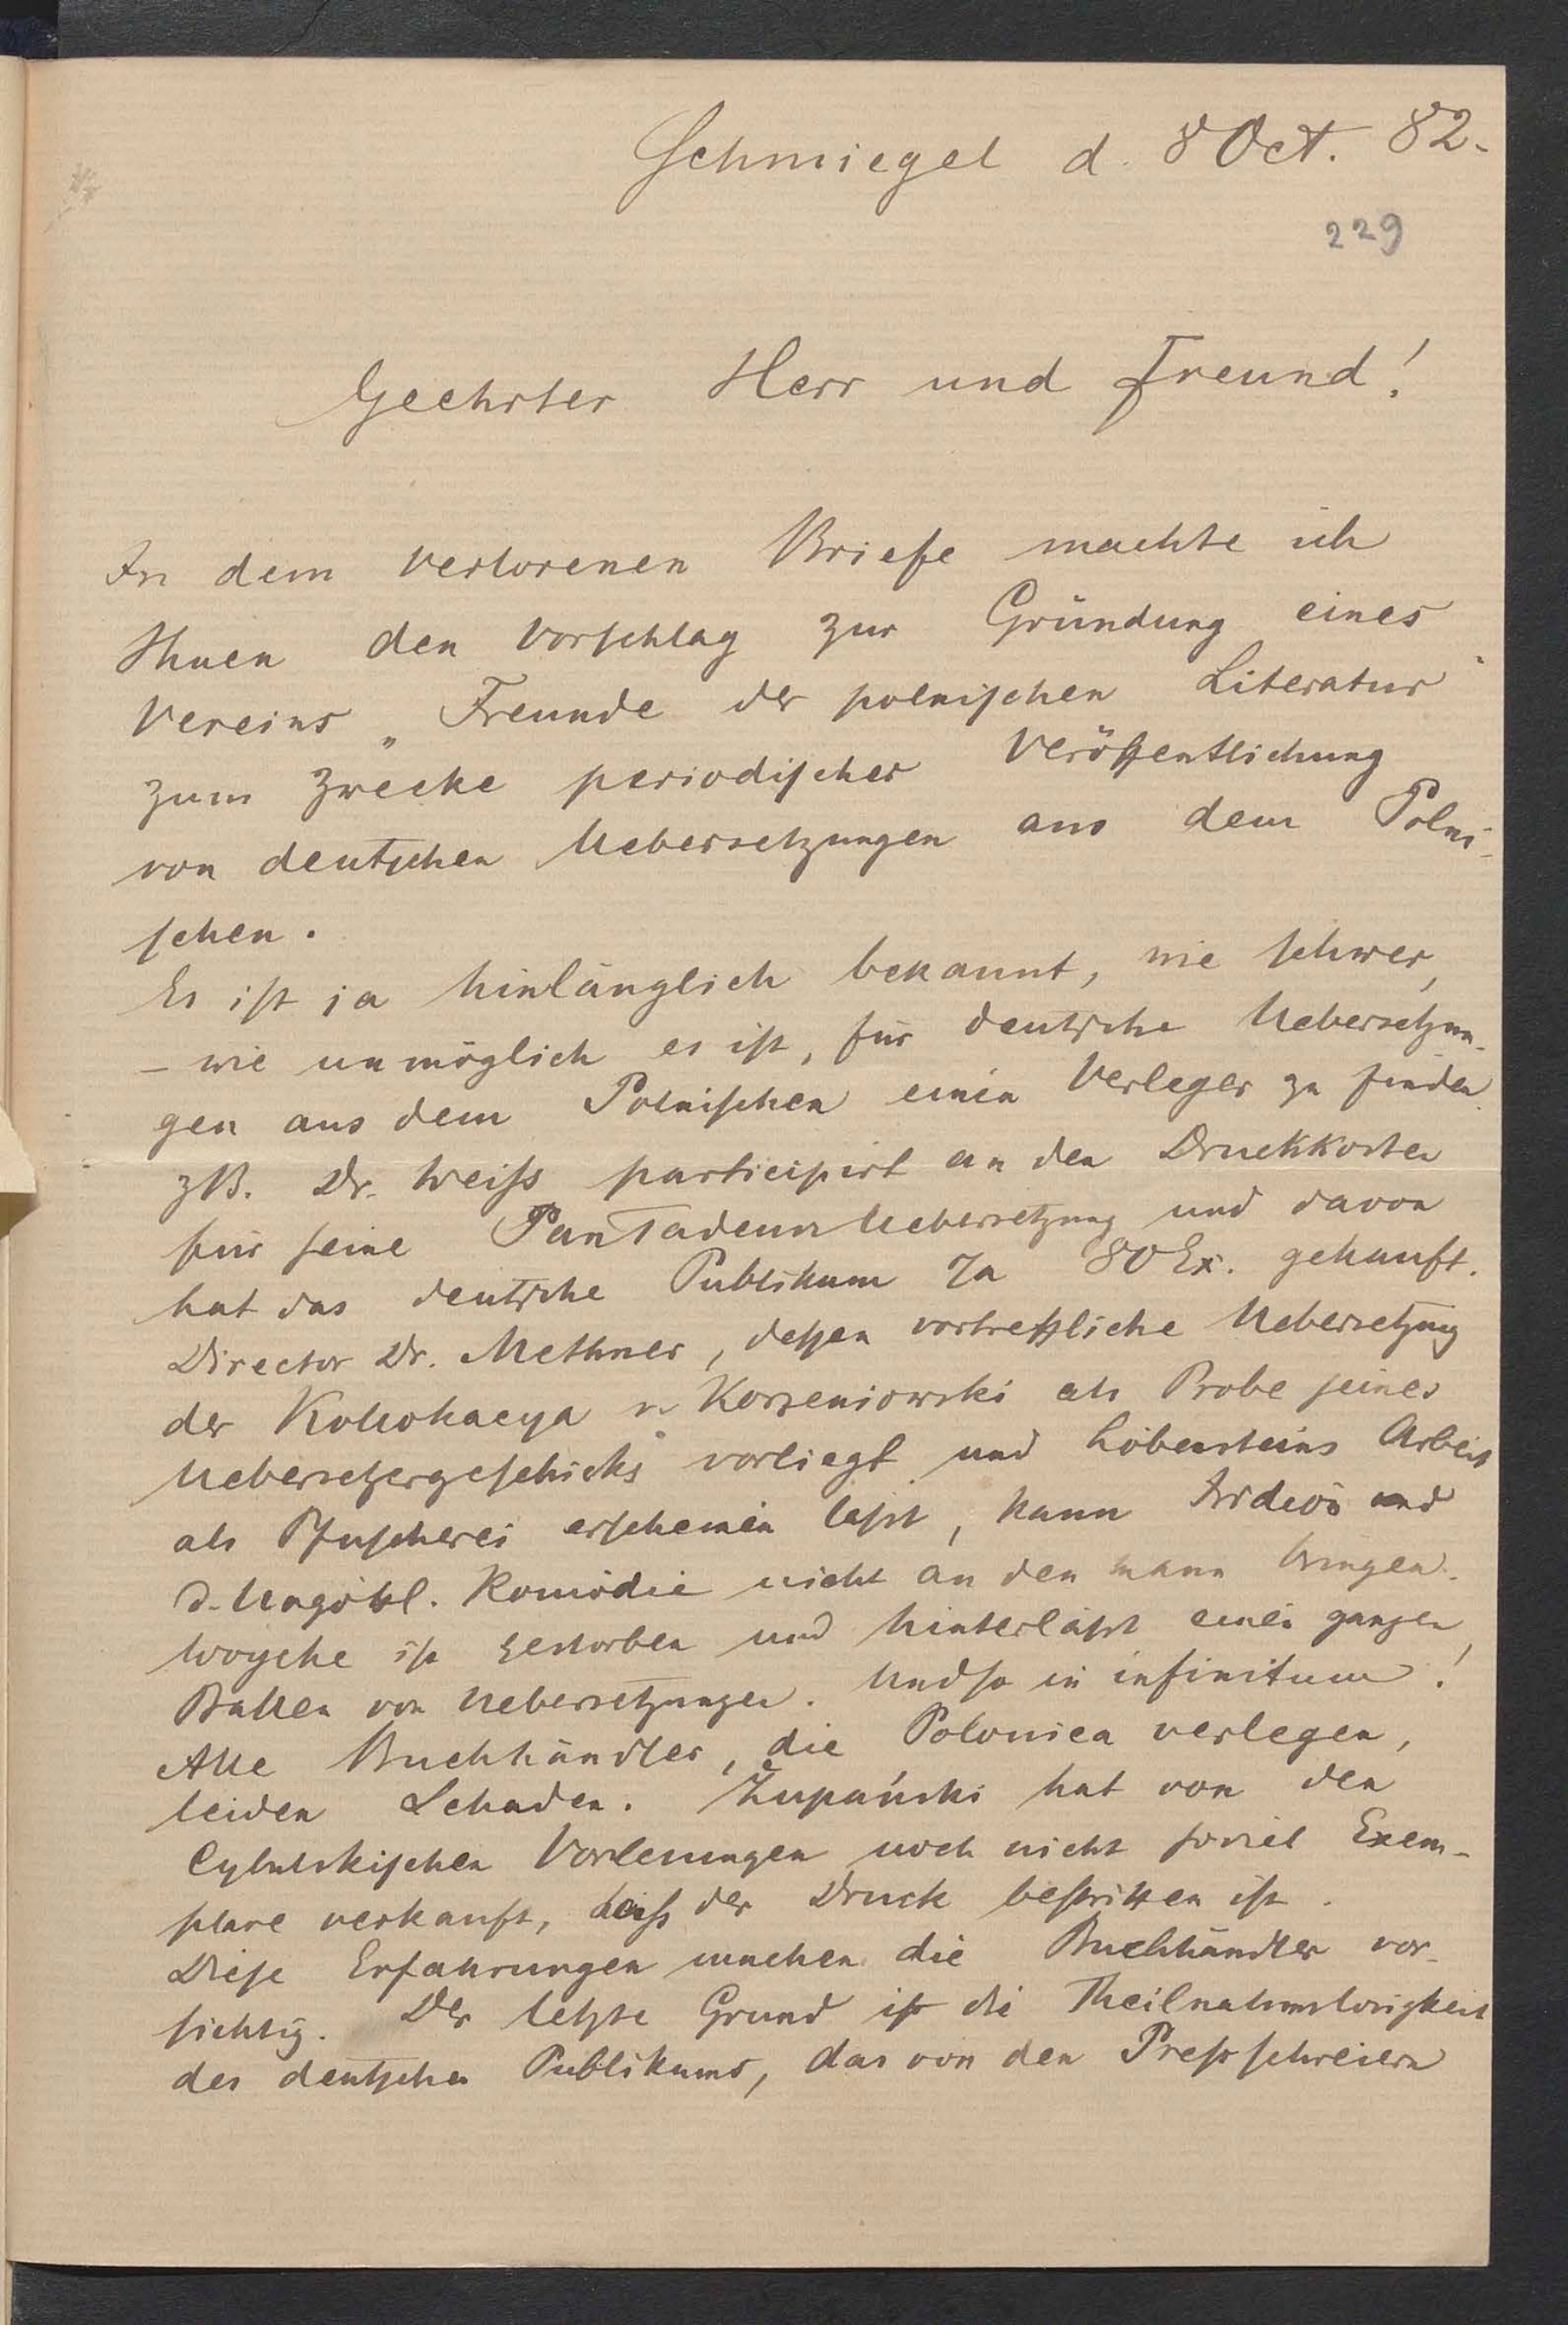 Schmiegel d. 8 Oct. 82.
229
Geehrter Herr und Freund!
In dem verlorenen Briefe machte ich
Ihnen den Vorschlag zur Gründung eines
Vereins „Freunde der polnischen Literatur“
zum Zwecke periodischer Veröffentlichung
von deutschen Uebersetzungen aus dem Polni-
schen.
Es ist ja hinlänglich bekannt, wie schwer,
– wie unmöglich es ist, für deutsche Uebersetzun-
gen aus dem Polnischen einen Verleger zu finden.
zB. Dr. Weiss participirt an den Druckkosten
für seine Pan Tadeusz Uebersetzung und davon
hat das deutsche Publikum 80 Ex. gekauft.
Director Dr. Methner, dessen vortreffliche Uebersetzung
der Kollokacya v. Korzeniowski als Probe seines
Uebersetzergeschicks vorliegt und Löbensteins Arbeit
als Pfuscherei erscheinen lässt, kann Irdion und
d. Ungöttl. Komödie nicht an den Mann bringen.
Woycke ist gestorben und hinterlässt einen ganzen
Ballen von Uebersetzungen. Und so in infinitum!
Alle Buchhändler, die Polonica verlegen,
leiden Schaden. Żupański hat von den
Cybulskischen Vorlesungen noch nicht soviel Exem-
plare verkauft, dass der Druck bestritten ist.
Diese Erfahrungen machen die Buchhändler vor-
sichtig. Der letzte Grund ist die Theilnahmslosigkeit
des deutschen Publikums, das von den Pressschreiern